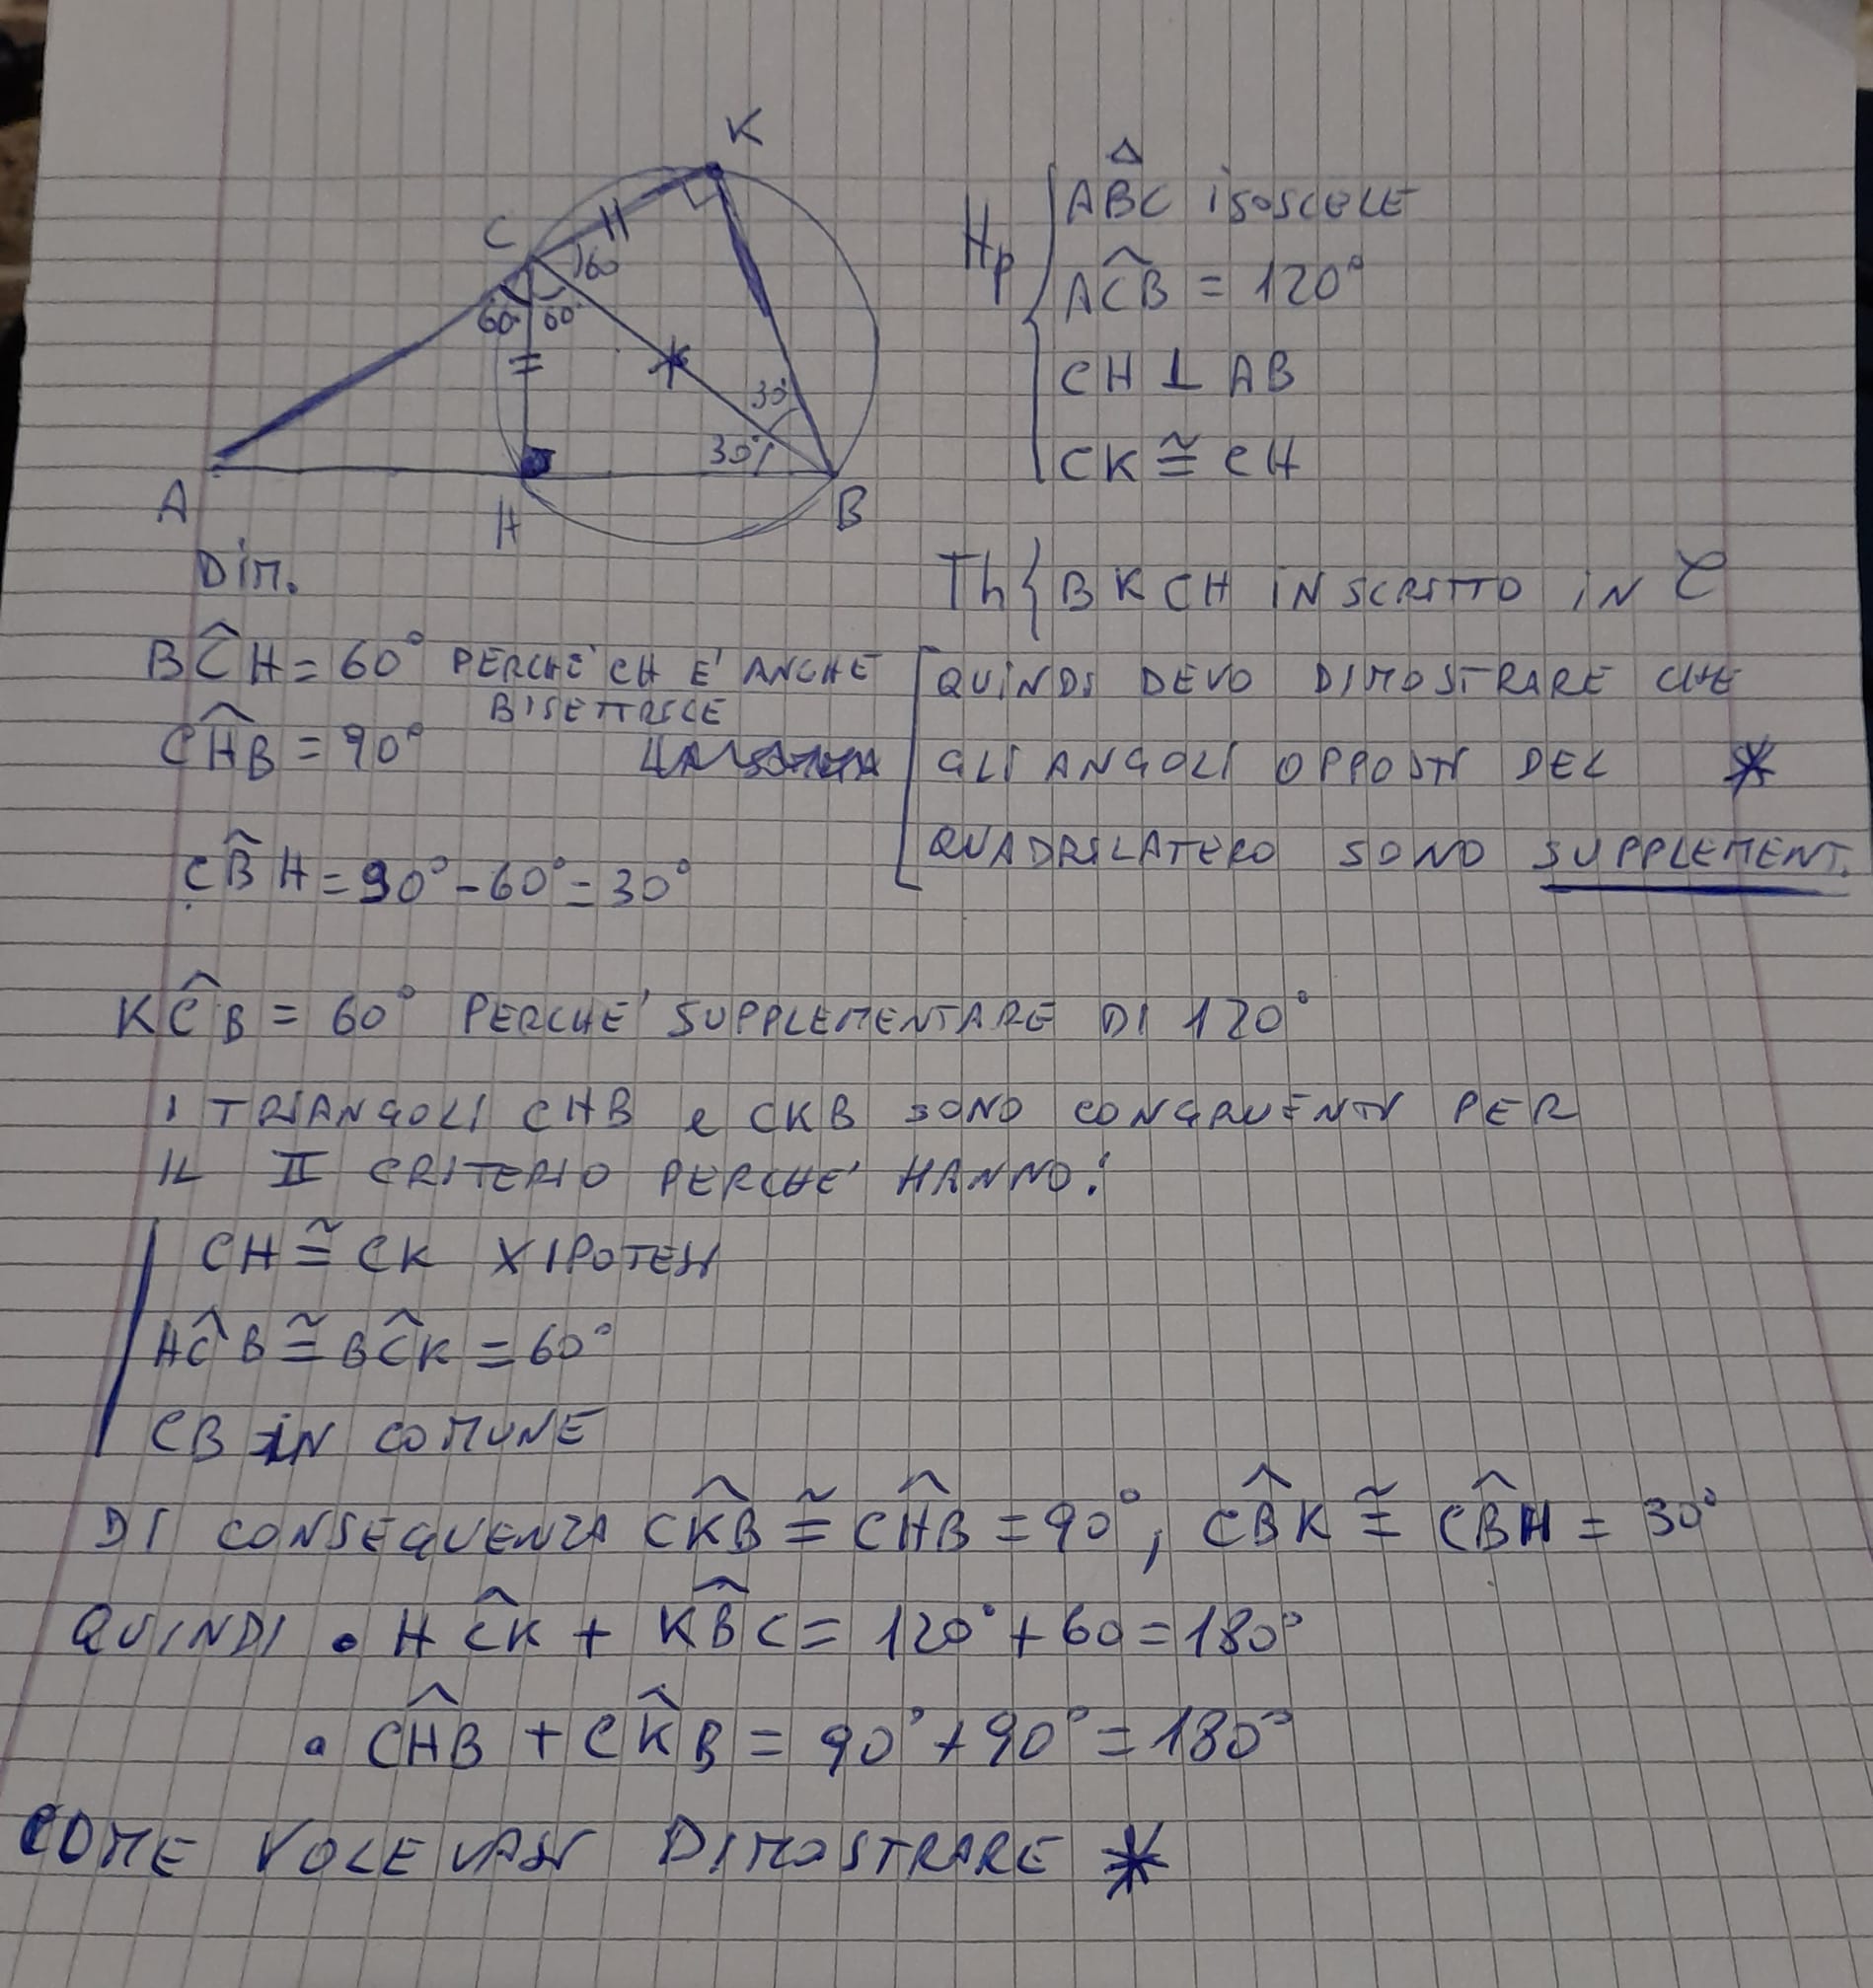 K
C
H
60
60°
60°
30°
30°
A
H
B
Hp
ABC ISOSCELE
AĈB = 120°
CH ⊥ AB
CK ≅ CH
Dim.
Th { BKCH INSCRITTO IN C
BĈH = 60° PERCHÉ CH E' ANCHE
BISETTRICE
CĤB = 90°
[QUINDI DEVO DIMOSTRARE CHE
GLI ANGOLI OPPOSTI DEL *
QUADRILATERO SONO SUPPLEMENT.
CB̂H = 90° - 60° = 30°
KĈB = 60° PERCHE' SUPPLEMENTARE DI 120°
I TRIANGOLI CHB e CKB SONO CONGRUENTI PER
IL II CRITERIO PERCHE' HANNO:
CH ≅ CK X IPOTESI
HĈB ≅ BĈK = 60°
CB IN COMUNE
DI CONSEGUENZA CK̂B ≅ CĤB = 90°, CB̂K ≅ CB̂H = 30°
QUINDI • HĈK + KB̂C = 120° + 60 = 180°
• CĤB + CK̂B = 90° + 90° = 180°
COME VOLEVASI DIMOSTRARE *